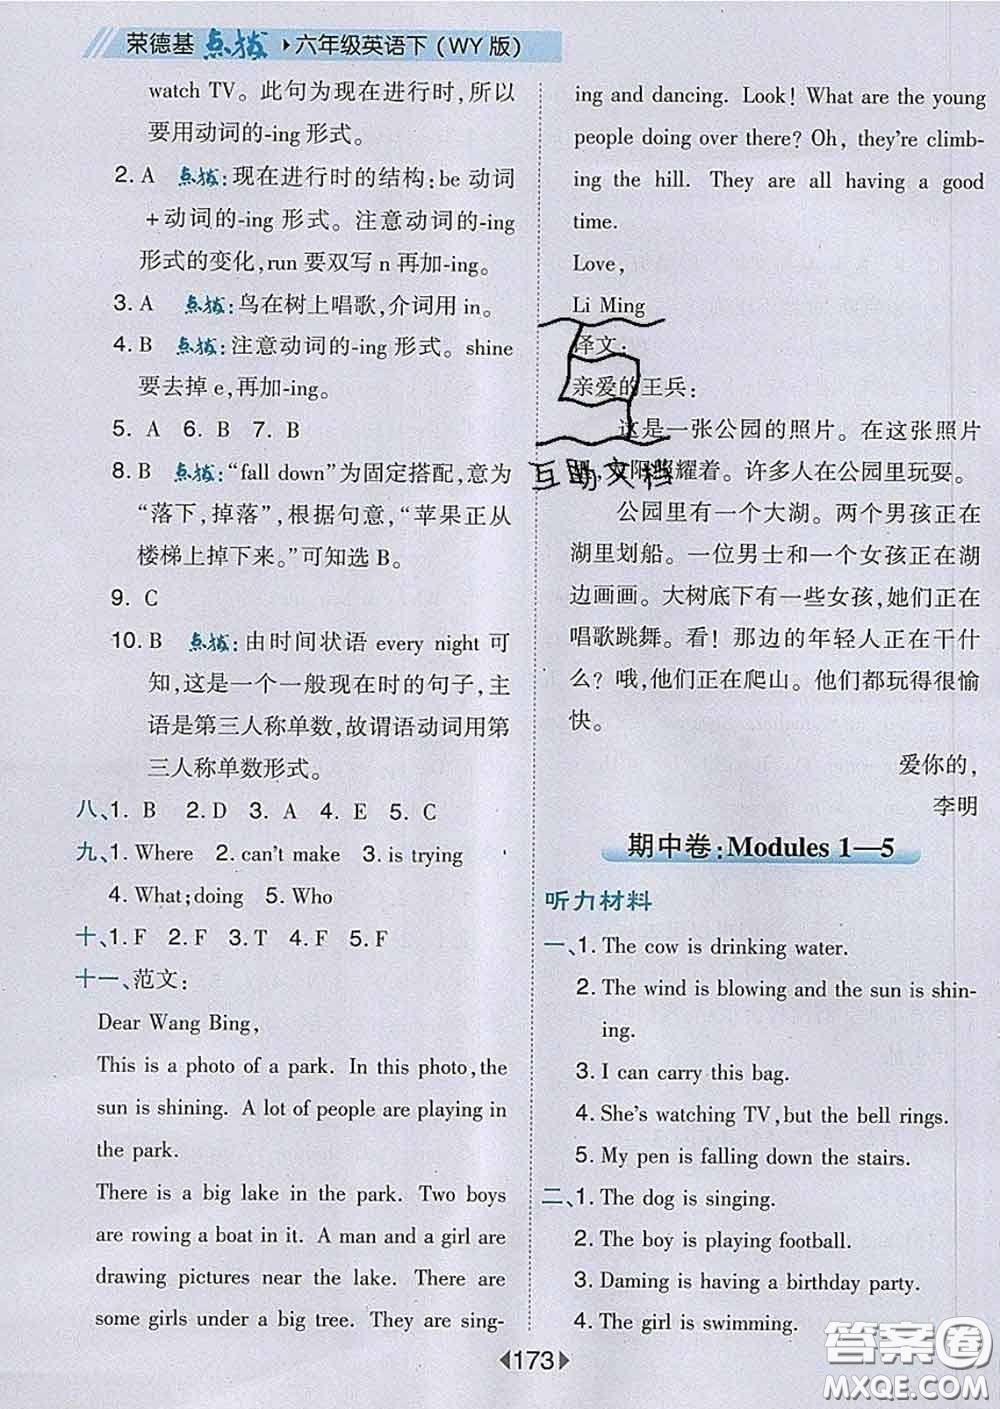 荣德基 点拨 ▸六年级英语下(WY版)
watch TV。此句为现在进行时,所以
要用动词的-ing 形式。
2. A 点拨:现在进行时的结构:be 动词
+动词的-ing 形式。注意动词的-ing
形式的变化,run 要双写 n 再加-ing。
3. A 点拨:鸟在树上唱歌,介词用 in。
4. B 点拨:注意动词的-ing 形式。shine
要去掉 e,再加-ing。
5. A 6. B 7. B
8. B 点拨:“fall down”为固定搭配,意为
“落下,掉落”,根据句意,“苹果正从
楼梯上掉下来。”可知选 B。
9. C
10. B 点拨:由时间状语 every night 可
知,这是一个一般现在时的句子,主
语是第三人称单数,故谓语动词用第
三人称单数形式。
八、1. B 2. D 3. A 4. E 5. C
九、1. Where 2. can't make 3. is trying
4. What;doing 5. Who
十、1. F 2. F 3. T 4. F 5. F
十一、范文:
Dear Wang Bing,
This is a photo of a park. In this photo,the
sun is shining. A lot of people are playing in
the park.
There is a big lake in the park. Two boys
are rowing a boat in it. A man and a girl are
drawing pictures near the lake. There are
some girls under a big tree. They are sing-
ing and dancing. Look! What are the young
people doing over there? Oh, they're climb-
ing the hill. They are all having a good
time.
Love,
Li Ming
译文:
亲爱的王兵:
这是一张公园的照片。在这张照片
里,太阳照耀着。许多人在公园里玩耍。
公园里有一个大湖。两个男孩正在
湖里划船。一位男士和一个女孩正在湖
边画画。大树底下有一些女孩,她们正在
唱歌跳舞。看!那边的年轻人正在干什
么?哦,他们正在爬山。他们都玩得很愉
快。
爱你的,
李明
互助文档
期中卷:Modules 1—5
听力材料
一、1. The cow is drinking water.
2. The wind is blowing and the sun is shin-
ing.
3. I can carry this bag.
4. She's watching TV,but the bell rings.
5. My pen is falling down the stairs.
二、1. The dog is singing.
2. The boy is playing football.
3. Daming is having a birthday party.
4. The girl is swimming.
173
答案圈
MXQE.COM